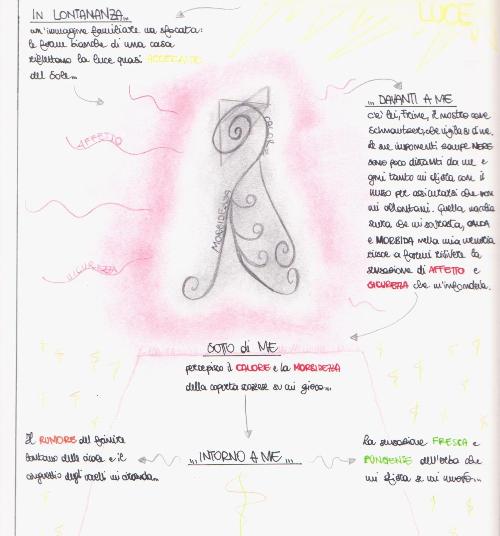 IN LONTANANZA...
un'immagine familiare ma sfocata:
le forme bianche di una casa
riflettono la luce quasi ACCECANTE
del sole...
LUCE
AFFETTO
SICUREZZA
CALORE
MORBIDEZZA
... DAVANTI A ME
c'è lui, Frine, il nostro cane
che vigila su di me.
le sue imponenti zampe NERE
sono poco distanti da me e
ogni tanto mi sfiora con il
muso per assicurarsi che non
mi allontani. Quella macchia
scura che mi sovrasta, CALDA
e MORBIDA nella mia memoria
riesce a farmi rivivere la
sensazione di AFFETTO e
SICUREZZA che m'infondeva.
SOTTO di ME
percepisco il CALORE e la MORBIDEZZA
della coperta scozzese su cui gioco...
... INTORNO A ME ...
Il RUMORE del frinire
lontano delle cicale e il
cinguettio degli uccelli mi circonda...
la sensazione FRESCA e
PUNGENTE dell'erba che
mi sfiora se mi muovo...